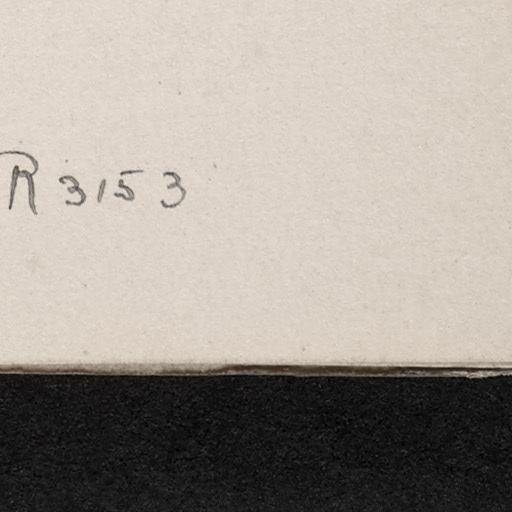 R 3153